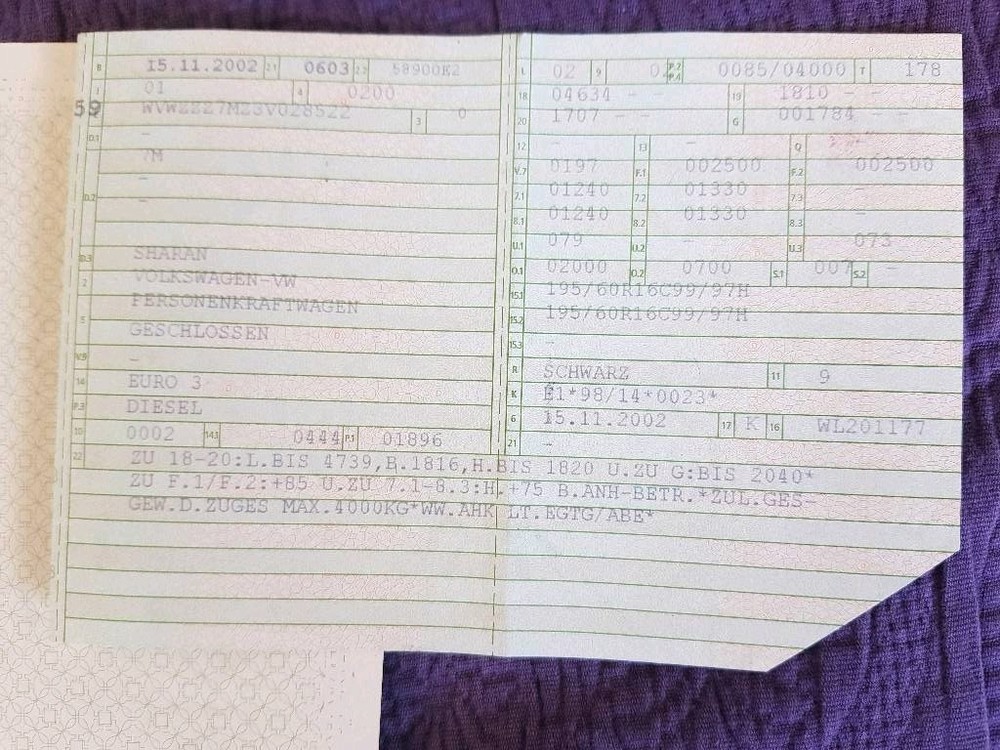 B 15.11.2002 2.1 0603 2.2 58900K2
J 01 4 0200
59
E WVWZZZ7MZ3V028522 3 0
D.1 -
7M
-
D.2 -
D.3 SHARAN
2 VOLKSWAGEN-VW
PERSONENKRAFTWAGEN
5
GESCHLOSSEN
V.9 -
14 EURO 3
P.3 DIESEL
10 0002 14.1 0444 P.1 01896
L 02 9 P.2 P.4 0085/04000 T 178
18 04634 - - 19 1810 - -
20 1707 - - G 001784 - -
12 - 13 - Q -
V.7 0197 F.1 002500 F.2 002500
7.1 01240 7.2 01330 7.3 -
8.1 01240 8.2 01330 8.3 -
U.1 079 U.2 - U.3 073
O.1 02000 O.2 0700 S.1 007 S.2 -
15.1 195/60R16C99/97H
15.2 195/60R16C99/97H
15.3 -
R SCHWARZ 11 9
K E1*98/14*0023*
6 15.11.2002 17 K 16 WL201177
21 -
22 ZU 18-20:L.BIS 4739,B.1816,H.BIS 1820 U.ZU G:BIS 2040*
ZU F.1/F.2:+85 U.ZU 7.1-8.3:H.+75 B.ANH-BETR.*ZUL.GES-
GEW.D.ZUGES MAX.4000KG*WW.AHK LT.EGTG/ABE*